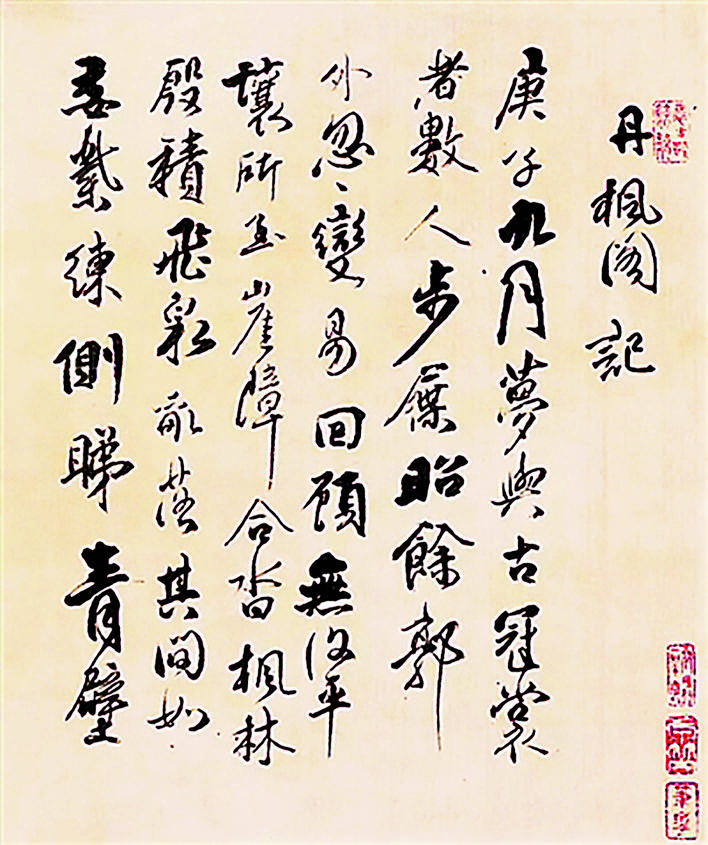 丹楓閣記
庚子九月夢與古冠裳
者數人步屧昭餘郭
外忽〻變易回顧無復平
壤所至崖障合沓楓林
殷積飛彩落其間如
練側睇青壁